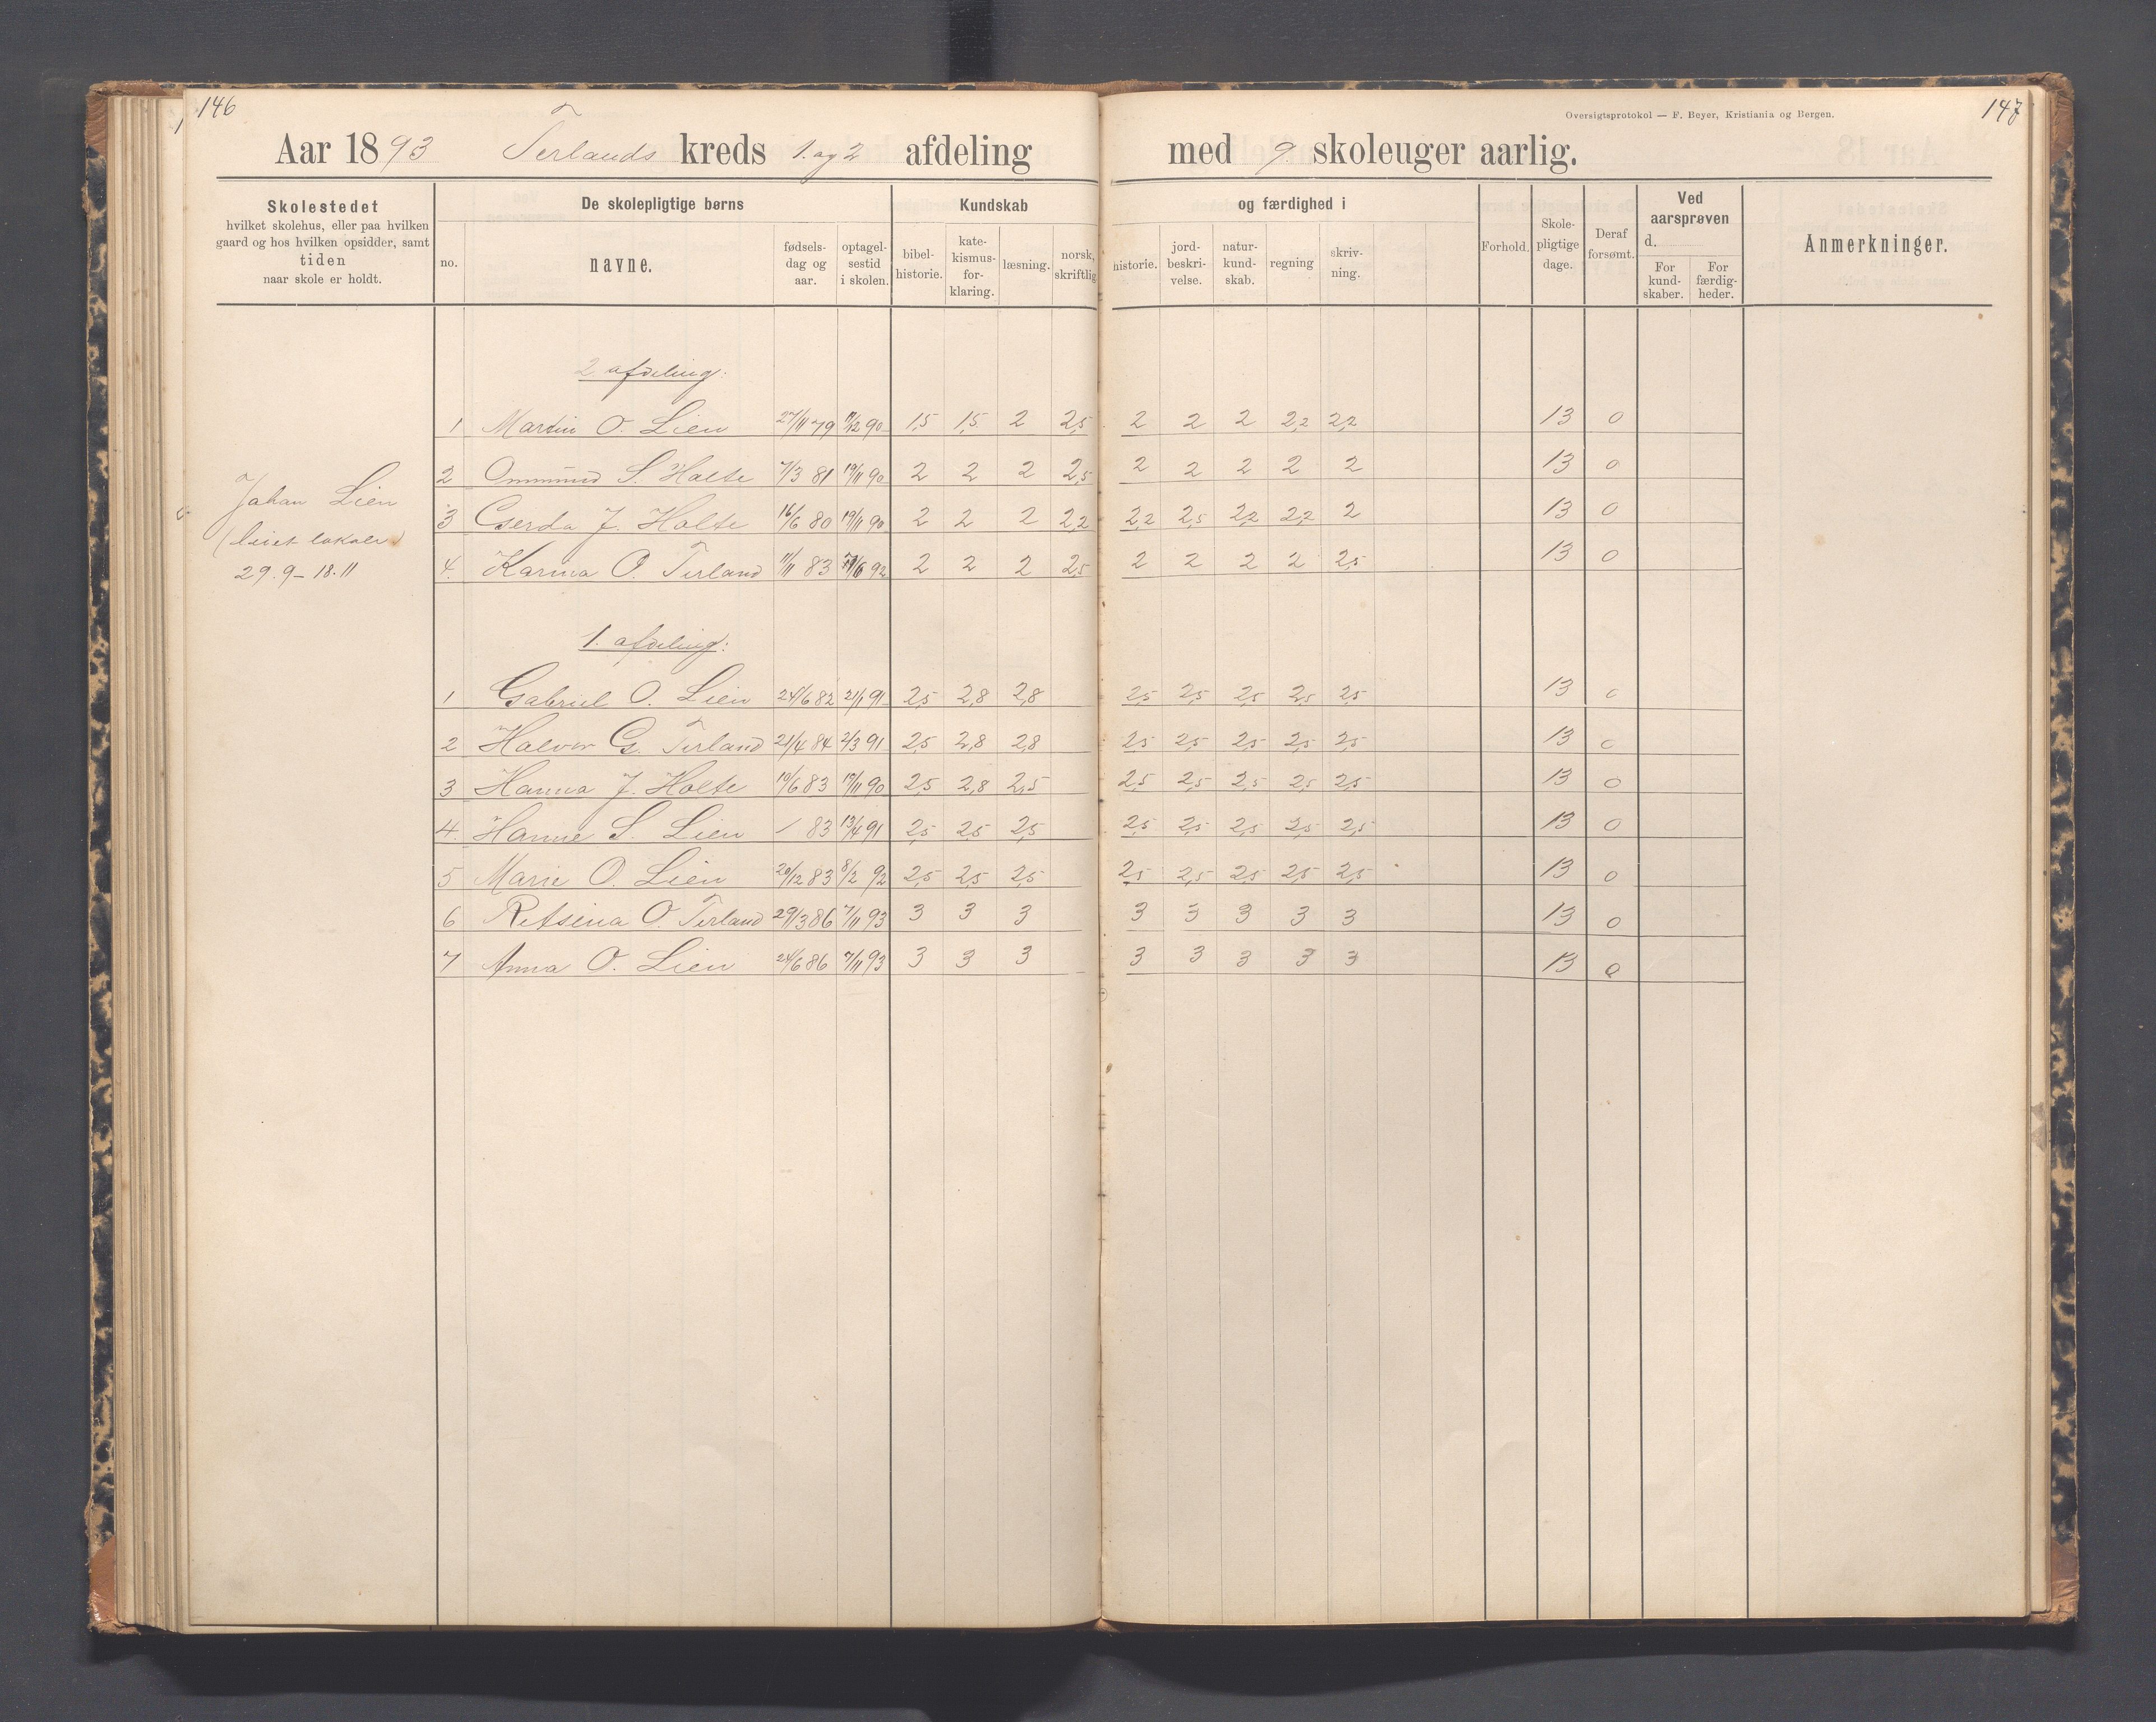 146
Aar 1893 Terlands kreds 1. og 2 afdeling
Skolestedet
hvilket skolehus, eller paa hvilken
gaard og hos hvilken opsidder, samt
tiden
naar skole er holdt.
De skolepligtige børns
no.
navne.
fødsels-
dag og
aar.
optagel-
sestid
i skolen.
Kundskab
bibel-
historie.
kate-
kismus-
for-
klaring.
læsning.
norsk,
skriftlig
Oversigtsprotokol — F. Beyer, Kristiania og Bergen.
147
med 9. skoleuger aarlig.
og færdighed i
historie.
jord-
beskri-
velse.
natur-
kund-
skab.
regning
skriv-
ning.
Forhold.
Skole-
pligtige
dage.
Deraf
forsømt.
Ved
aarsprøven
d.
For
kund-
skaber.
For
færdig-
heder.
Anmerkninger.
Johan Lien
(leiet lokale)
29.9 - 18.11
2 afdeling:
1 Martin O. Lien 27/11 79 11/12 90 1,5 1,5 2 2,5 2 2 2 2,2 2,2 13 0
2 Ommund S. Holte 7/3 81 19/11 90 2 2 2 2,5 2 2 2 2 2 13 0
3 Gserda J. Holte 16/6 80 19/11 90 2 2 2 2,2 2,2 2,5 2,2 2,2 2 13 0
4. Karina O. Terland 11/11 83 92 2 2 2 2,5 2 2 2 2 2,5 13 0
1. afdeling:
1 Gabriel O. Lien 24/6 82 21/1 91 2,5 2,8 2,8 2,5 2,5 2,5 2,5 2,5 13 0
2 Halvor G. Terland 21/4 84 2/3 91 2,5 2,8 2,8 2,5 2,5 2,5 2,5 2,5 13 0
3 Hanna J. Holte 10/6 83 19/11 90 2,5 2,8 2,5 2,5 2,5 2,5 2,5 2,5 13 0
4. Hanne S. Lien / 83 13/4 91 2,5 2,5 2,5 2,5 2,5 2,5 2,5 2,5 13 0
5 Marie O. Lien 20/12 83 8/2 92 2,5 2,5 2,5 2,5 2,5 2,5 2,5 2,5 13 0
6 Retsina O. Terland 29/3 86 7/11 93 3 3 3 3 3 3 3 3 13 0
7 Anna O. Lien 24/6 86 7/11 93 3 3 3 3 3 3 3 3 13 0